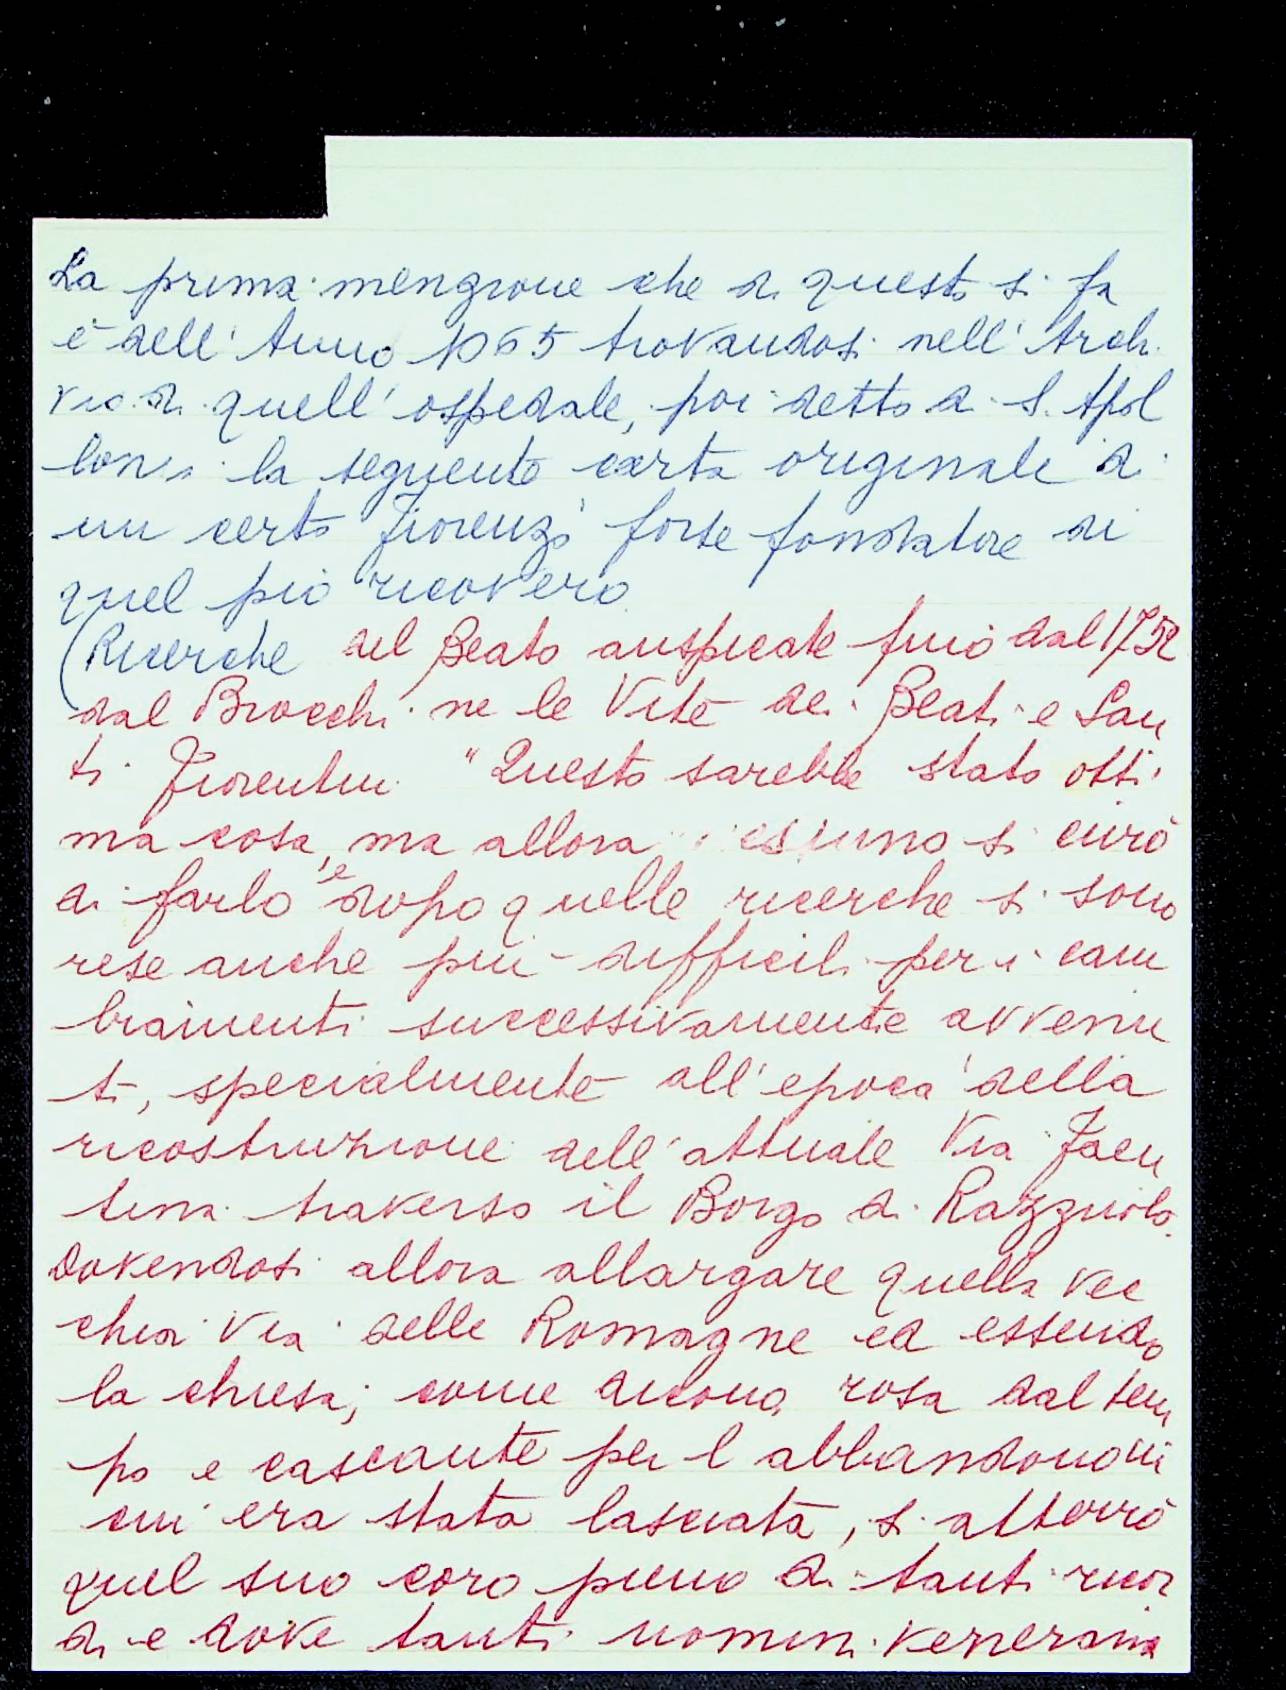 La prima menzione che di questo si fa
è dell'Anno 1065 trovandosi nell'Archi
vio di quell'ospedale, poi detto di S. Apol
lonia la seguente carta originale di
un certo Fiorenzo forse fondatore di
quel pio ricovero
(Ricerche del Beato auspicate fino dal 1752
dal Brocchi ne le Vite dei Beati e San
ti Fiorentini. "Questo sarebbe stato otti
ma cosa, ma allora nessuno si curò
di farlo e dopo quelle ricerche si sono
rese anche più difficili per i cam
biamenti successivamente avvenu
ti, specialmente all'epoca della
ricostruzione dell'attuale Via Faen
tina traverso il Borgo di Razzuolo.
Dovendosi allora allargare quella vec
chia Via delle Romagne ed essendo
la chiesa, come dicono, rosa dal tem
po e cascante per l abbandono di
cui era stata lasciata, si atterrò
quel suo coro pieno di tanti ricor
di e dove tanti uomini venerano